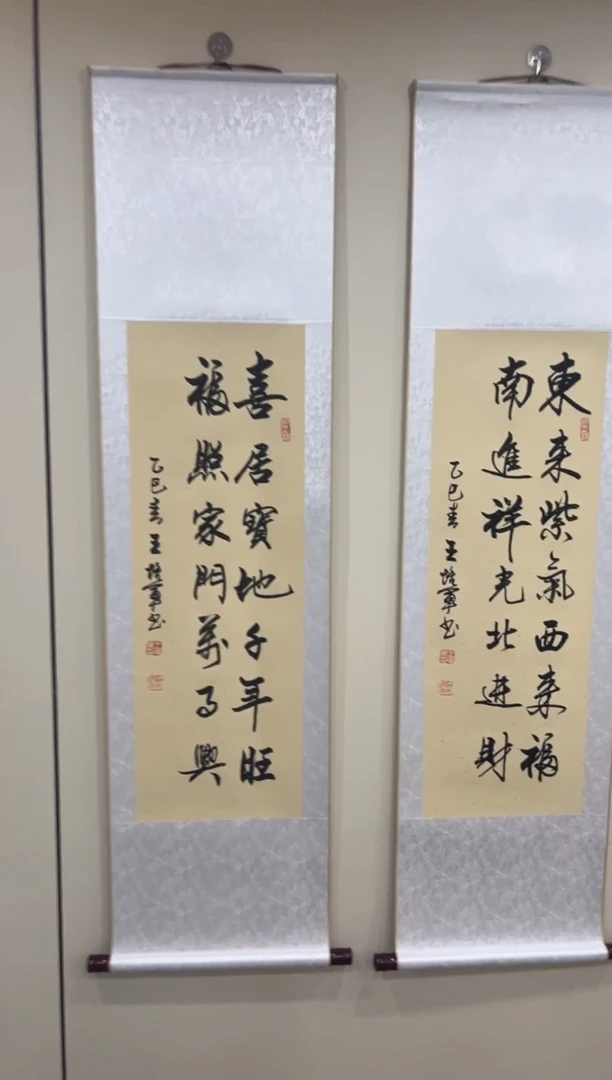 東来紫氣西来福
南進祥光北进財
乙巳春王书
喜居寶地千年旺
福照家門萬事興
乙巳春王书